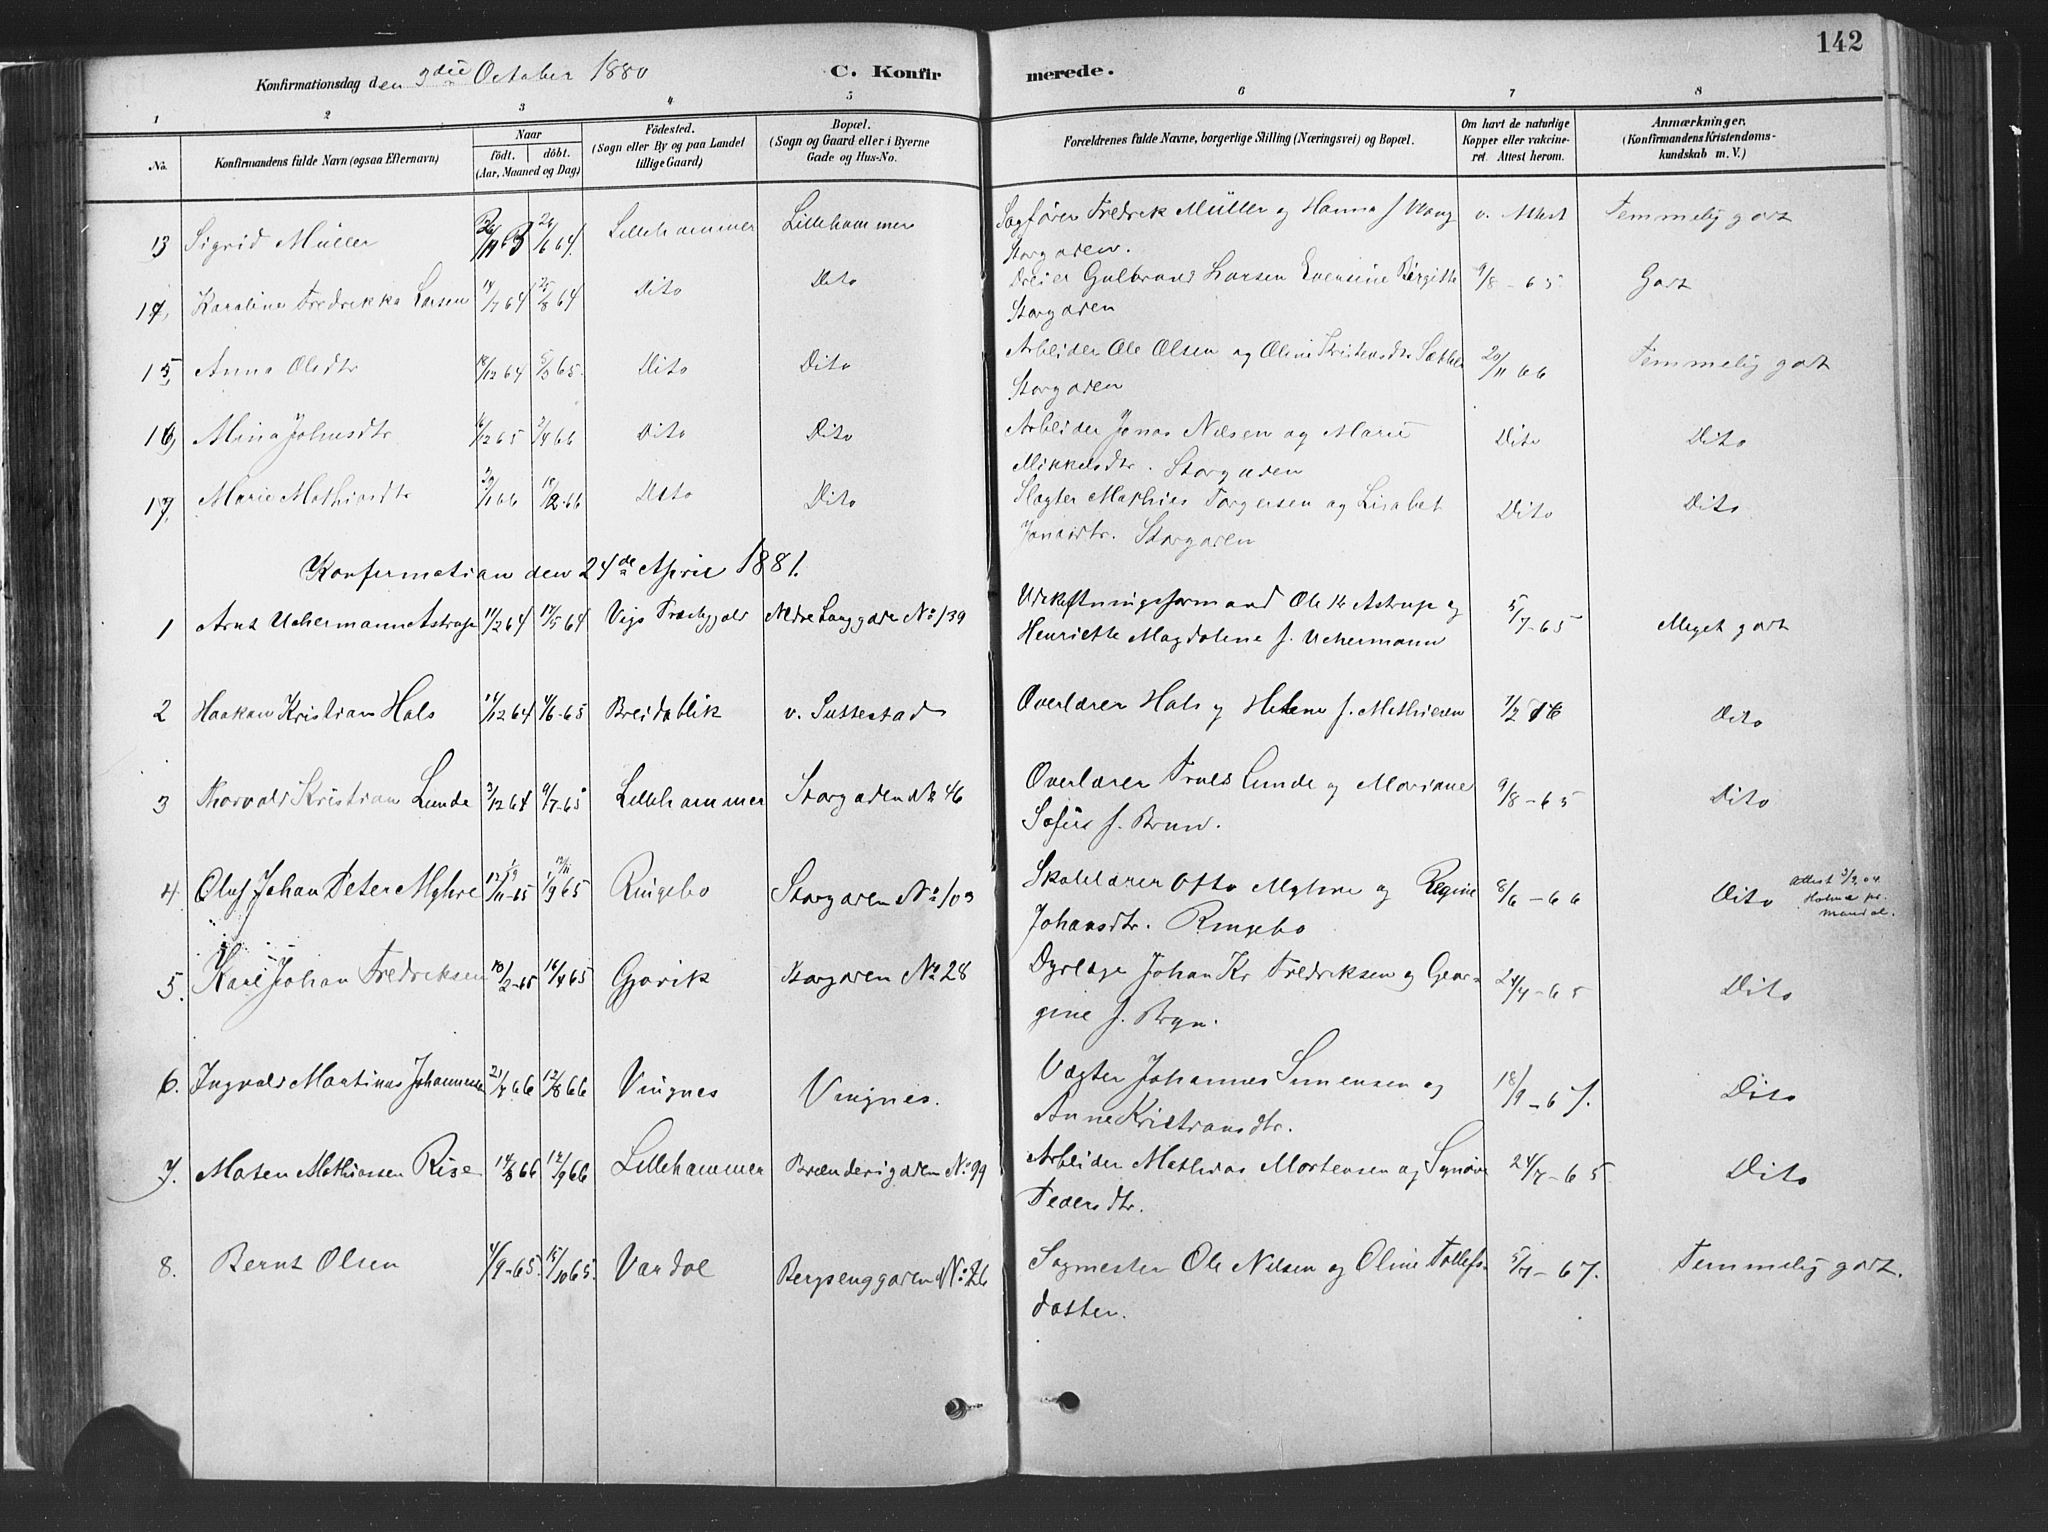 142
Konfirmationsdag den 3die October 1880 C. Konfirmerede.
1 2 3 4 5 6 7 8
No. Konfirmandens fulde Navn (ogsaa Efternavn) Naar født. døbt. (Aar, Maaned og Dag) Födested. (Sogn eller By og paa Landet tillige Gaard) Bopæl. (Sogn og Gaard eller i Byerne Gade og Hus-No. Forældrenes fulde Navne, borgerlige Stilling (Næringsvei) og Bopæl. Om havt de naturlige Kopper eller vakcineret. Attest herom. Anmærkninger. (Konfirmandens Kristendomskundskab m. V.)
13 Sigrid Müller 24/6 64. Lillehammer Lillehammer Sagfører Fredrik Müller og Hanna f. v. Attest Temmelig godt
Storgaden.
14, Karoline Fredrikke Larsen 14/7 64 25/8 64 Dito Dito Dreier Gulbrand Larsen Evensine Birgitte 9/8 - 65 Godt
Storgaden
15, Anna Olsdtr 18/12 64 5/3 65. Dito Dito Arbeider Ole Olsen og Oline Kristensdtr 20/11 66 Temmelig godt
Storgaden
16, Mina Johnsdtr 16/12 65 2/4 66 Dito Dito Arbeider Jonas Nilsen og Marie Dito Dito
Mikkelsdtr. Storgaden
17, Marie Mathiasdtr 20/1 66 18/2-66 Dito Dito Slagter Mathias Torgersen og Lisabet Dito Dito
Storgaden
Konfirmation den 24de April 1881.
1 Arnt Uchermann Astrup 11/2 64 17/5 64 Nedre Langgade No 139 Ole Kr Astrup og 5/7-65 Meget godt
Henriette Magdalene f. Uchermann
2 Haakon Kristian Hals 14/12 64 4/6-65 Breidablik v. Suttestad Overlærer Hals og Helene f. Mathiesen Dito
3 Thorvald Kristian Lunde 3/12 64 9/7-65 Lillehammer Storgaden No 46 Overlærer Truls Lunde og Mariane 9/8-65 Dito
Sofie f. Brun.
4. Oluf Johan Peter Myhre 12/11-65 1/9 65 Ringebo Storgaden No 103 Skolelærer Otto Myhre og Regine 8/6-66 Dito Attest 3/9.04
Johansdtr. Ringebo
5. Karl Johan Fredriksen 10/2-65 16/4 65 Gjøvik Storgaden No 28 Dyrlæge Johan Kr Fredriksen og Geor- 24/7-65 Dito
gine f. Bryn.
6. Ingvald Martinus Johannesen 21/7 66 12/8 66 Vingnes Vingnes. Vægter Johannes Simensen og 18/9-67. Dito
Anne Kristiansdtr.
7. Mosen Mathiassen Rise 14/8 66 12/9 66 Lillehammer Brænderigaden No 99 Arbeider Mathias Mortensen og Synøve 24/7-65 Dito
Pedersdtr.
8. Bernt Olsen 4/9-65. 15/10 65. Vardal Bergsenggaden No 26 Sagmester Ole Nilsen og Oline Tollefs- 5/7-67. Temmelig godt.
datter.